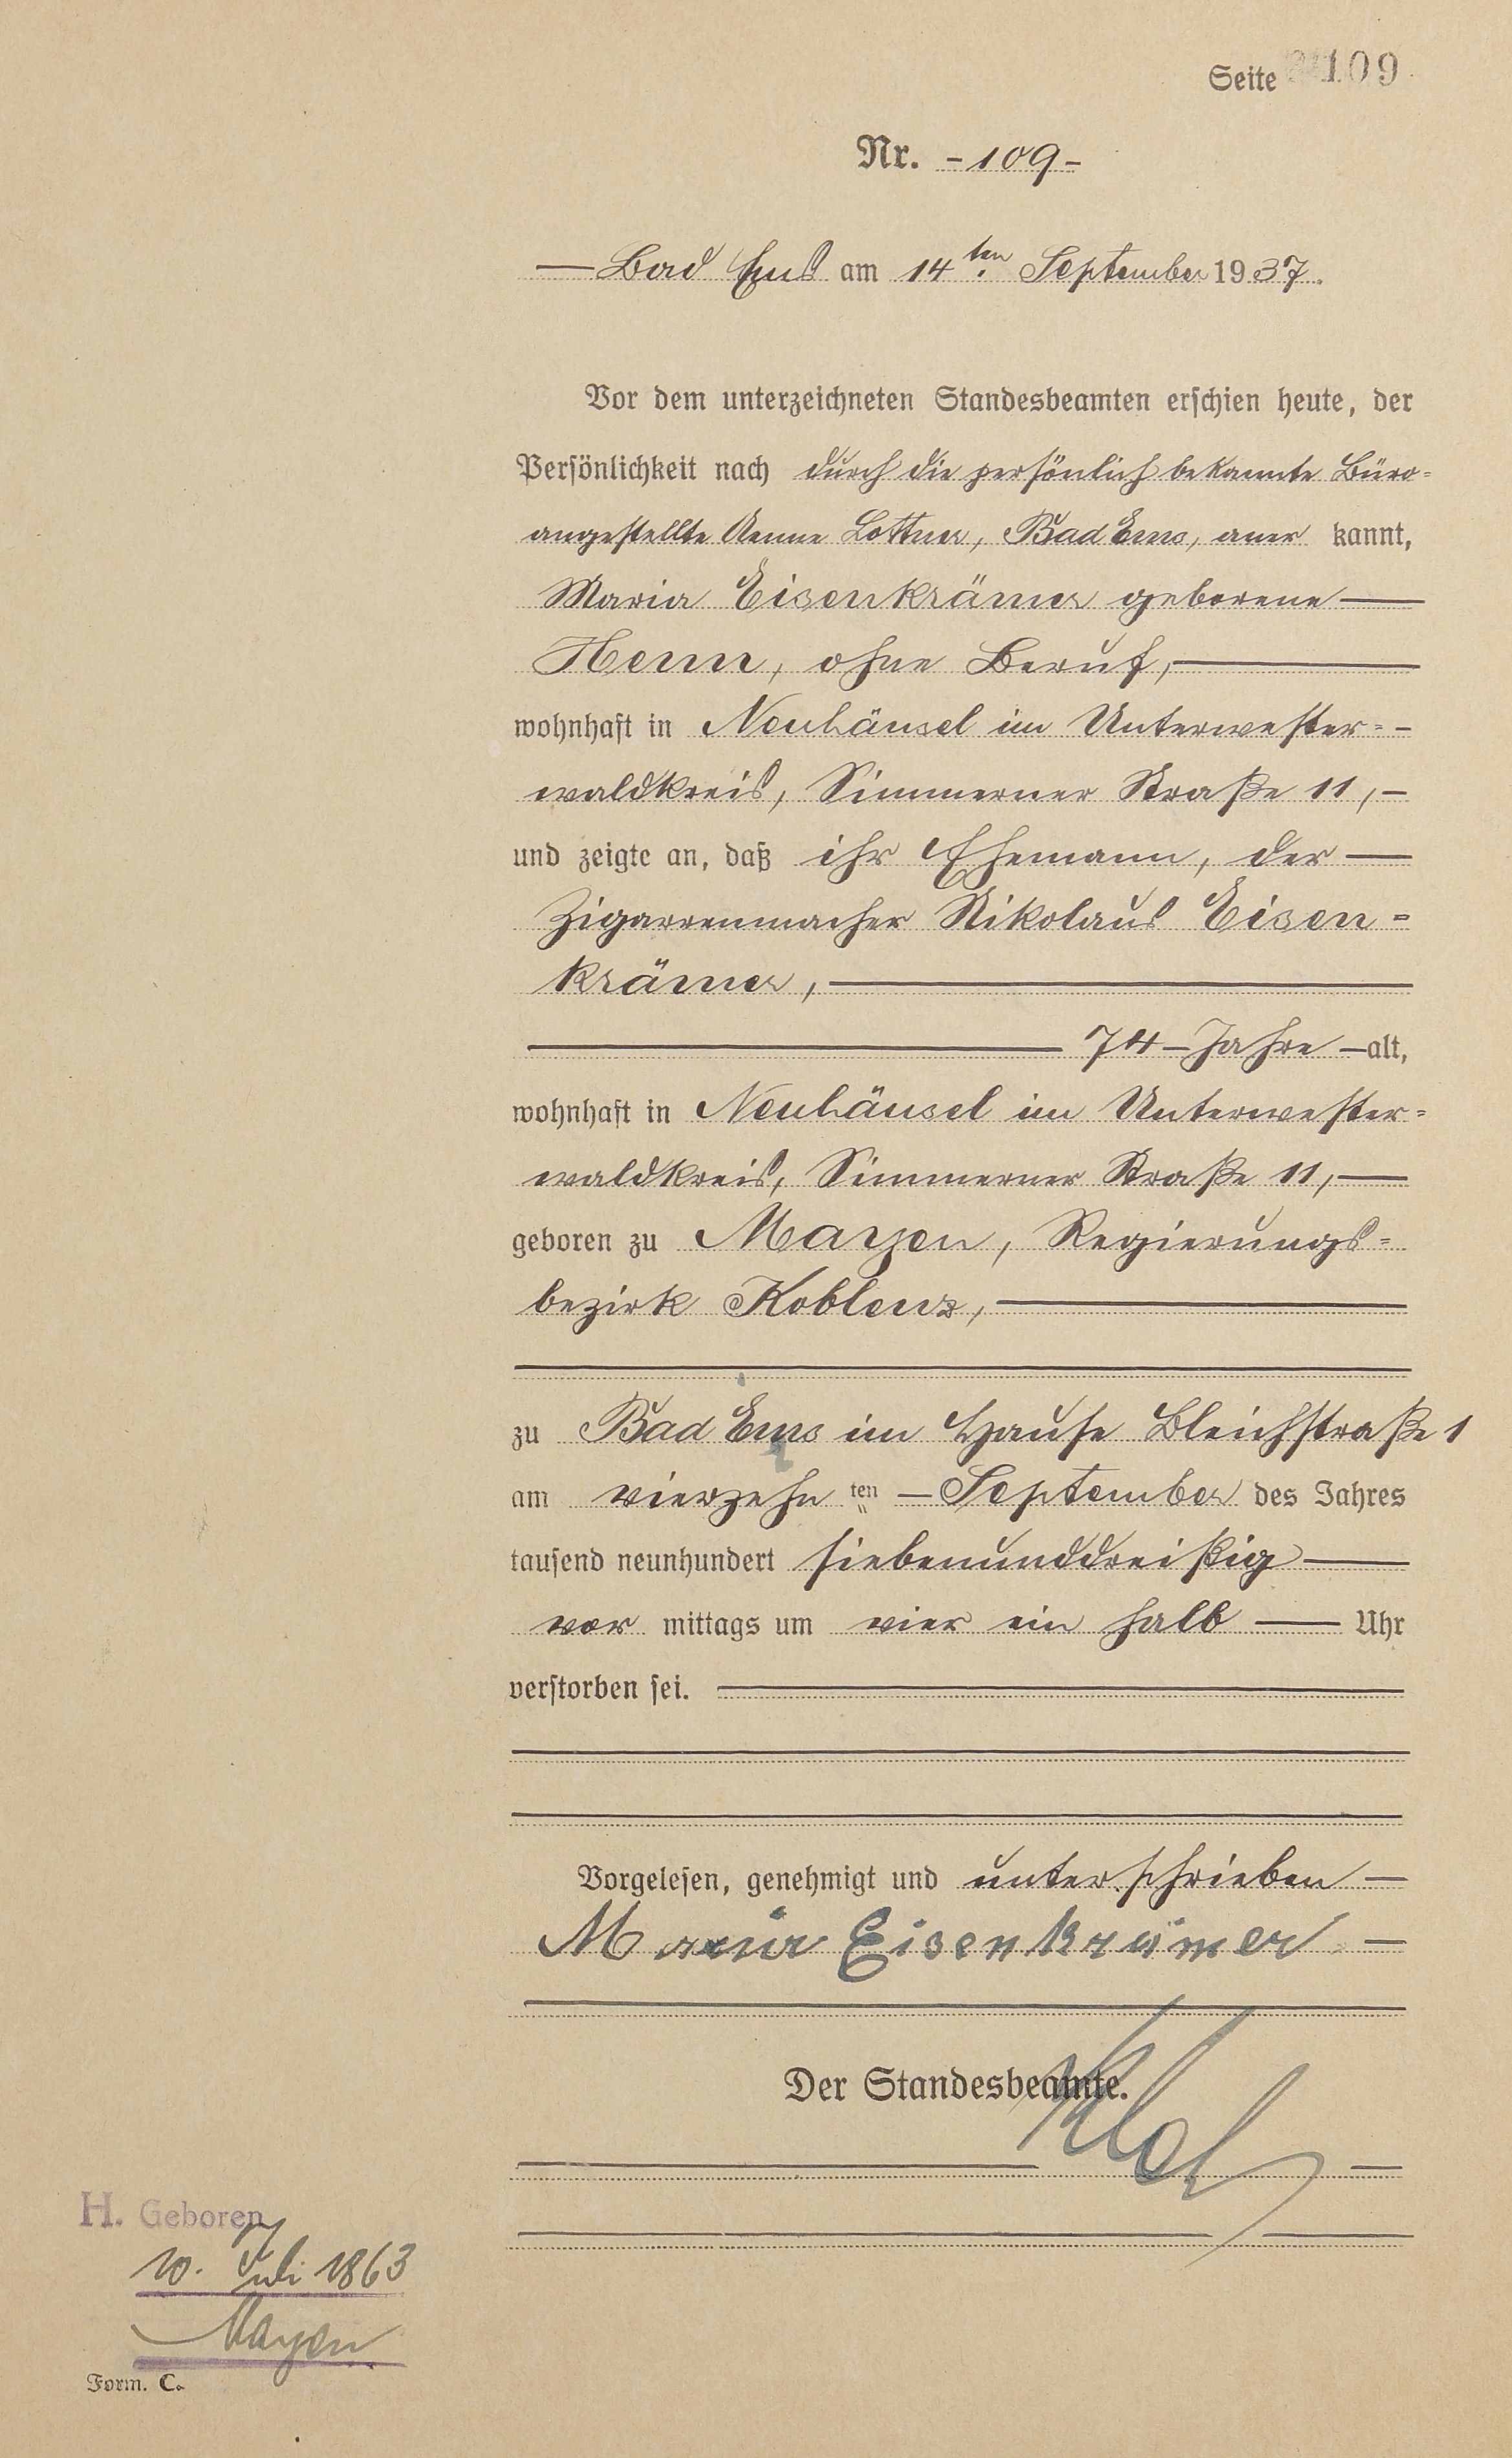 Seite 109
Nr. -109-
Bad Ems am 14ten September 1937.
Vor dem unterzeichneten Standesbeamten erschien heute, der
Persönlichkeit nach durch die persönlich bekannte Büro-
angestellte Aenne Lottner, Bad Ems, aner kannt,
Maria Eisenkrämer geborene
Henn, ohne Beruf,
wohnhaft in Neuhäusel im Unterwester-
waldkreis, Simmerner Straße 11,
und zeigte an, daß ihr Ehemann, der
Zigarrenmacher Nikolaus Eisen-
krämer,
74 Jahre alt,
wohnhaft in Neuhäusel im Unterwester-
waldkreis, Simmerner Straße 11,
geboren zu Mayen, Regierungs-
bezirk Koblenz,
zu Bad Ems im Hause Bleichstraße 1
am vierzehn ten September des Jahres
tausend neunhundert siebenunddreißig
vor mittags um vier ein halb Uhr
verstorben sei.
Vorgelesen, genehmigt und unterschrieben
Maria Eisenkrämer
Der Standesbeamte.
H. Geboren
10. Juli 1863
Mayen
Form. C.